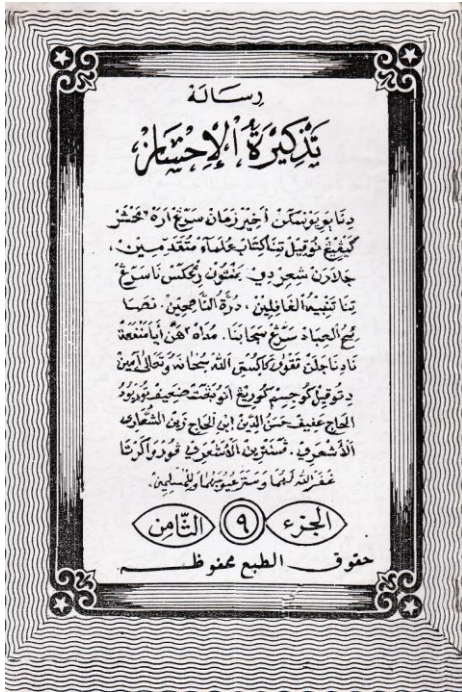 رسالة
تذكيرة الإحسان
دنا بويونمكن أخير زمان سرڠ اره٢ محشر
كڠڤڠ نوقيل تنا كتاب علماء متقدمين،
جلارن شعر دي
تنا تنبيه الغافلين، درة الناصحين، نصا
ئح العباد سرڠ سجابنا. مداه٢هن أيا منفعة
نا دنا جلن تقوى كاكستي الله سبحانه وتعالى آمين
دتوقيل كو جسم كوريڠ
الحاج عفيف حسن الدين ابن الحاج زين الشعاري
الأشعري. ڤسنترين الأشعري ڤوروا كرتا
غفر الله لهما وستر عيوبهما وللمسلمين.
الجزء ٩ الثامن
حقوق الطبع محفوظة